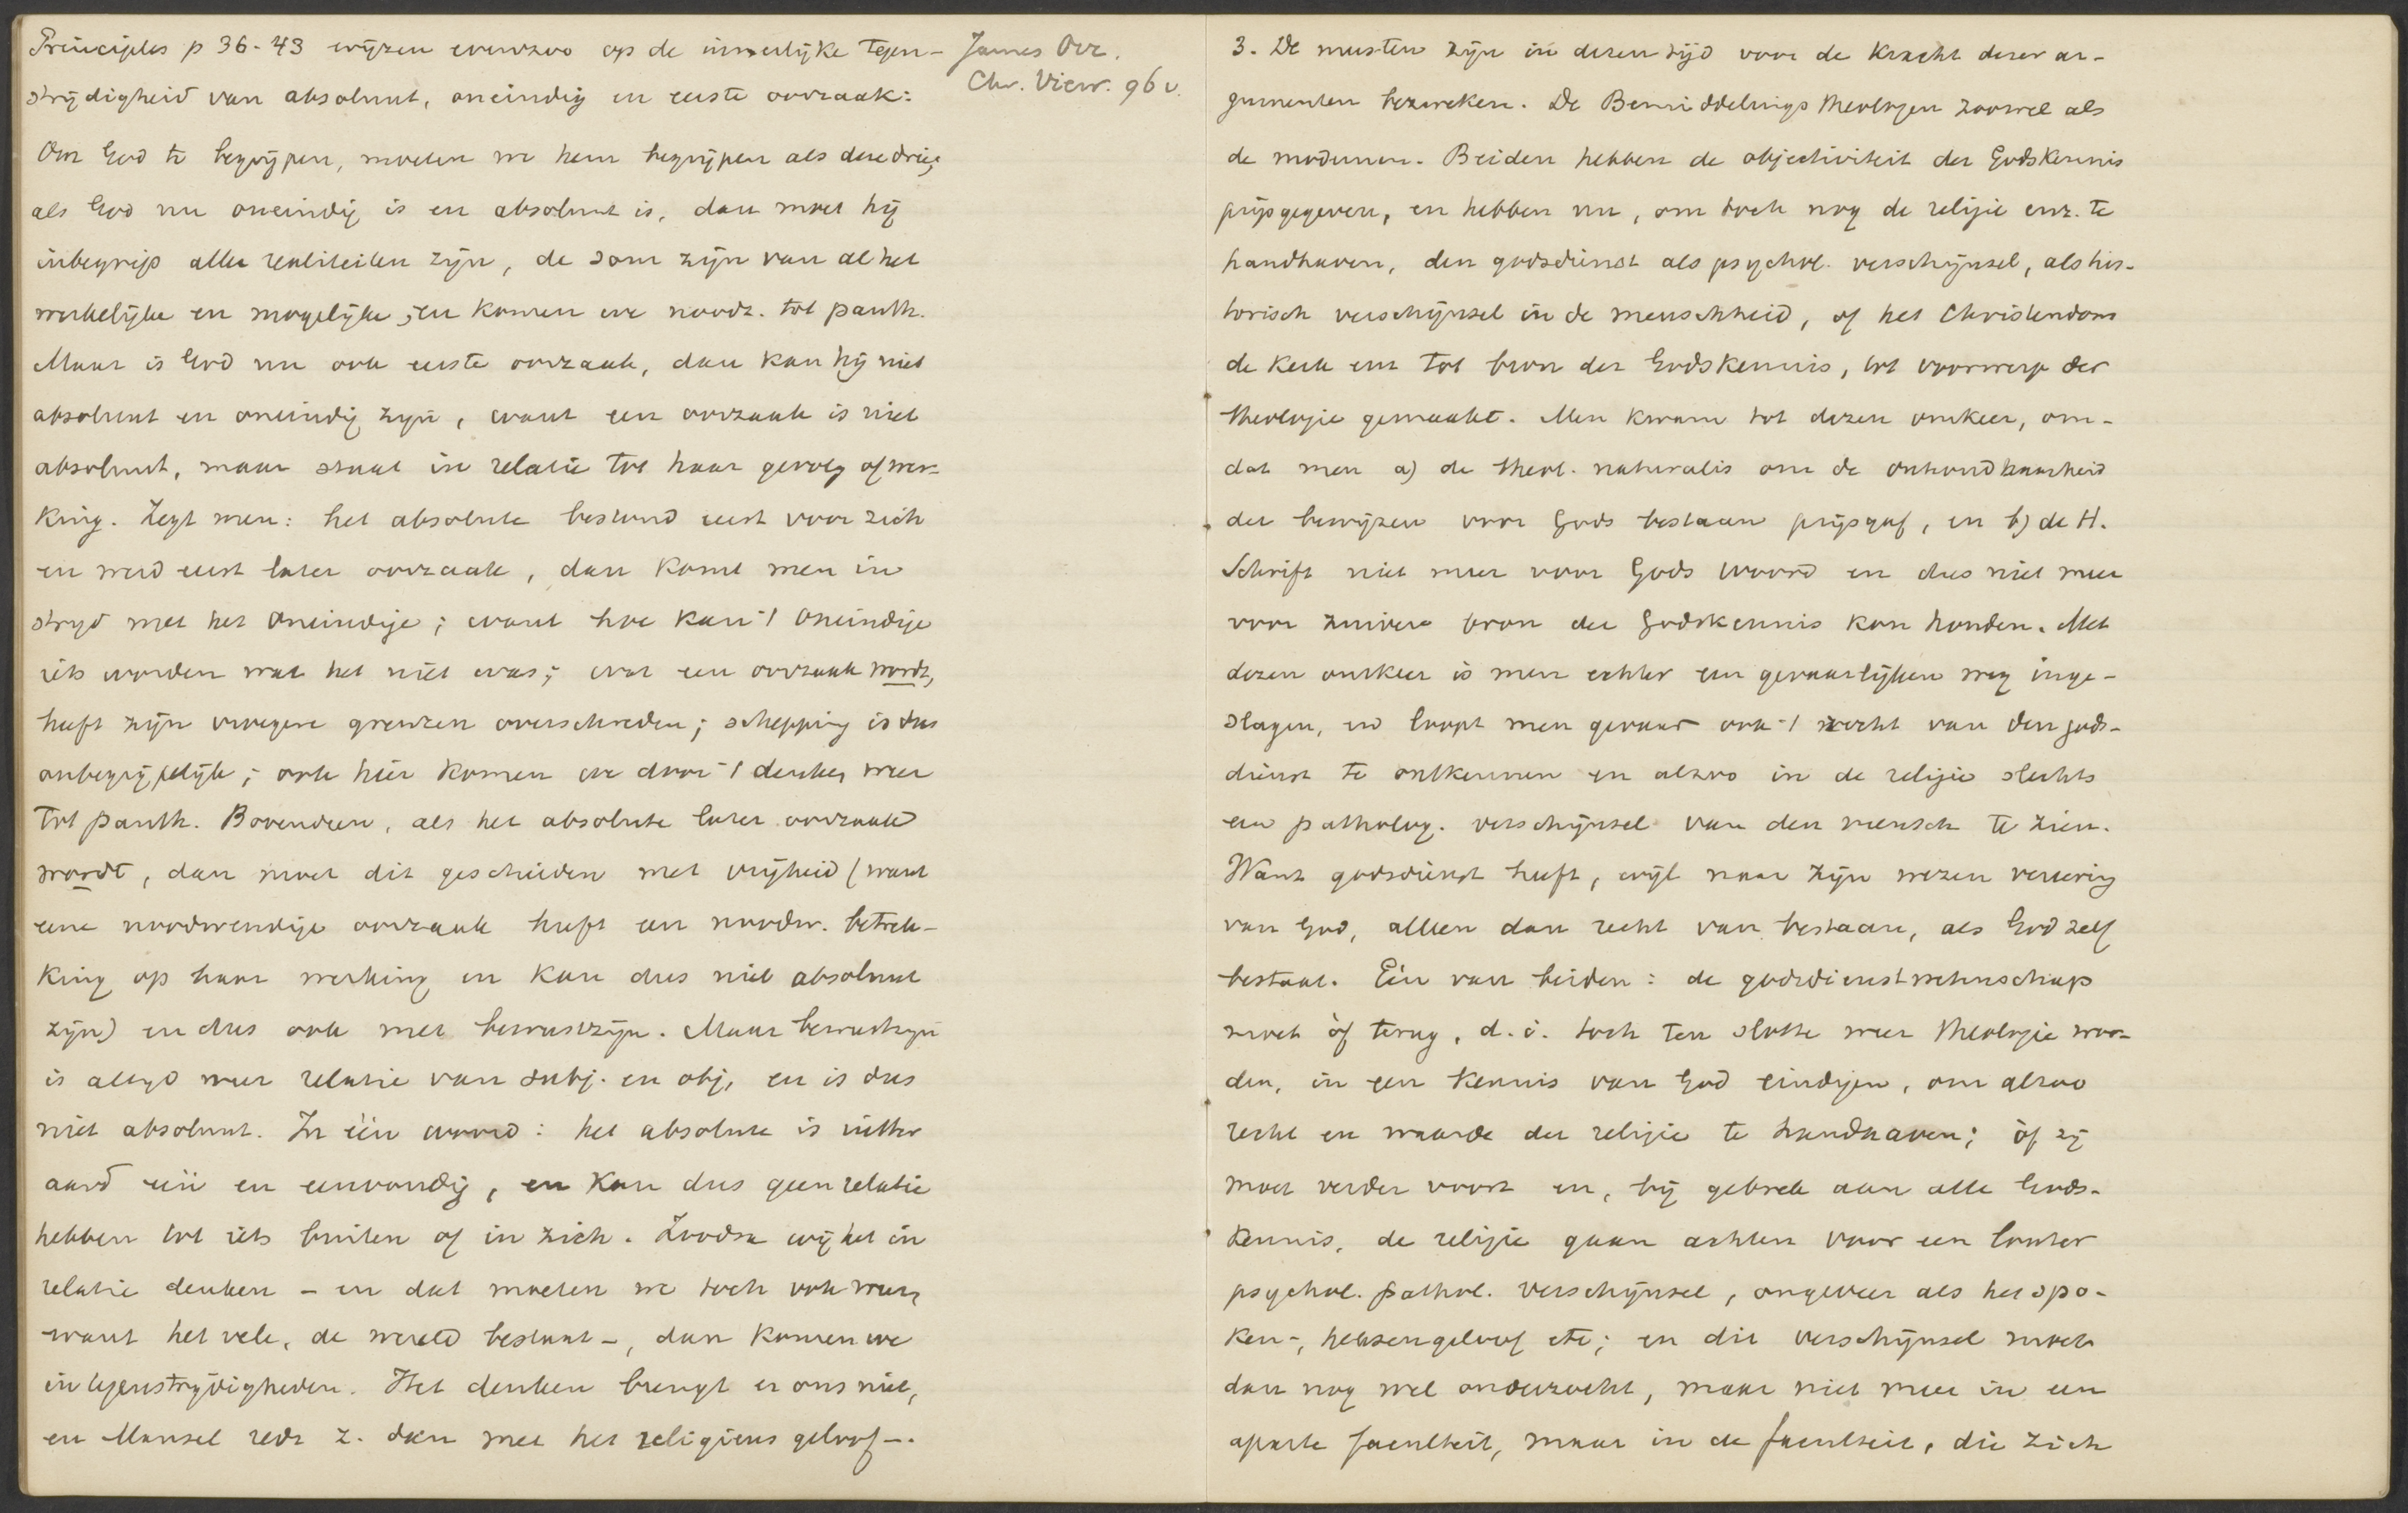 Principles p 36-43 wijzen evenzoo op de innerlijke tegen-
strijdigheid van absoluut, oneindig en eerste oorzaak:
Om God te begrijpen, moeten we hem begrijpen als deze drie;
als God nu oneindig is en absoluut is, dan moet hij
inbegrip aller realiteiten zijn, de som zijn van al het
werkelijke en mogelijke; en komen we noodz. tot panth.
Maar is God nu ook eerste oorzaak, dan kan hij niet
absoluut en oneindig zijn, want een oorzaak is niet
absoluut, maar staat in relatie tot haar gevolg of wer-
king. Zegt men: het absolute bestond eerst voor zich
en werd eerst later oorzaak, dan komt men in
strijd met het oneindige; want hoe kan 't oneindige
iets worden wat het niet was; wat een oorzaak wordt,
heeft zijn vroegere grenzen overschreden; schepping is dus
onbegrijpelijk; ook hier komen we door 't denken weer
tot panth. Bovendien, als het absolute later oorzaak
wordt, dan moet dit geschieden met vrijheid (want
eene noodwendige oorzaak heeft een noodw. betrek-
king op haar werking en kan dus niet absoluut
zijn) en dus ook met bewustzijn. Maar bewustzijn
is altijd weer relatie van subj. en obj, en is dus
niet absoluut. In één woord: het absolute is uitter
aard één en eenvoudig, en kan dus geen relatie
hebben tot iets buiten of in zich. Zoodra wij het in
relatie denken - en dat moeten we toch ook weer,
want het vele, de wereld bestaat -, dan komen we
in tegenstrijdigheden. Het denken brengt er ons niet,
en Mansel redt z. dan met het religieus geloof -.
James Orr.
Chr. View. 96 v.
3. De meesten zijn in dezen tijd voor de kracht dezer ar-
gumenten bezweken. De Bemiddelings theologen zoowel als
de modernen. Beiden hebben de objectiviteit der Godskennis
prijsgegeven, en hebben nu, om toch nog de religie enz. te
handhaven, den godsdienst als psychol. verschijnsel, als his-
torisch verschijnsel in de menschheid, of het Christendom
de kerk enz tot bron der Godskennis, tot voorwerp der
theologie gemaakt. Men kwam tot dezen omkeer, om-
dat men a) de theol. naturalis om de onhoudbaarheid
der bewijzen voor Gods bestaan prijsgaf, en b) de H.
Schrift niet meer voor Gods woord en dus niet meer
voor zuivere bron der Godskennis kon houden. Met
dezen omkeer is men echter een gevaarlijken weg inge-
slagen, en loopt men gevaar ook 't recht van den gods-
dienst te ontkennen en alzoo in de religie slechts
een patholog. verschijnsel van den mensch te zien.
Want godsdienst heeft, wijl naar zijn wezen vereering
van God, alleen dan recht van bestaan, als God zelf
bestaat. Eén van beiden: de godsdienstwetenschap
moet òf terug, d.i. toch ten slotte weer theologie wor-
den, in een kennis van God eindigen, om alzoo
recht en waarde der religie te handhaven; òf zij
moet verder voort en, bij gebrek aan alle Gods-
kennis, de religie gaan achten voor een louter
psychol. pathol. verschijnsel, ongeveer als het spo-
ken-, heksengeloof etc; en dit verschijnsel moet
dan nog wel onderzocht, maar niet meer in een
aparte faculteit, maar in de faculteit, die zich